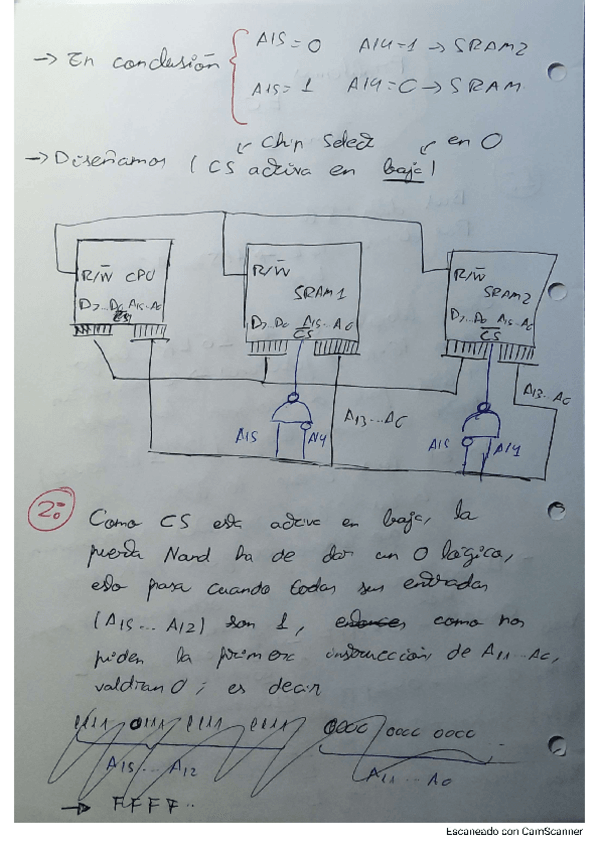 → En conclusión { A15 = 0 A14 = 1 → SRAM2
A15 = 1 A14 = 0 → SRAM
chip select en 0
→ Diseñamos ( CS activa en baja )
R/W̅ CPU
D7...D0 A15..A0
R/W̅
SRAM1
D7...D0 A15..A0
C̅S̅
R/W̅
SRAM2
D7...D0 A15..A0
C̅S̅
A13..A0
A15 A14
A13...A0
A15 A14
2:
Como CS esta activa en baja, la
puerta Nand ha de dar un 0 lógico,
esto pasa cuando todas sus entradas
(A15... A12) son 1, entonces como nos
piden la primera instrucción, de A11...A0,
valdrian 0; es decir
1111 0111 1111 1111 0000 0000 0000
A15 ... A12
A11 ... A0
→ FFFF..
Escaneado con CamScanner